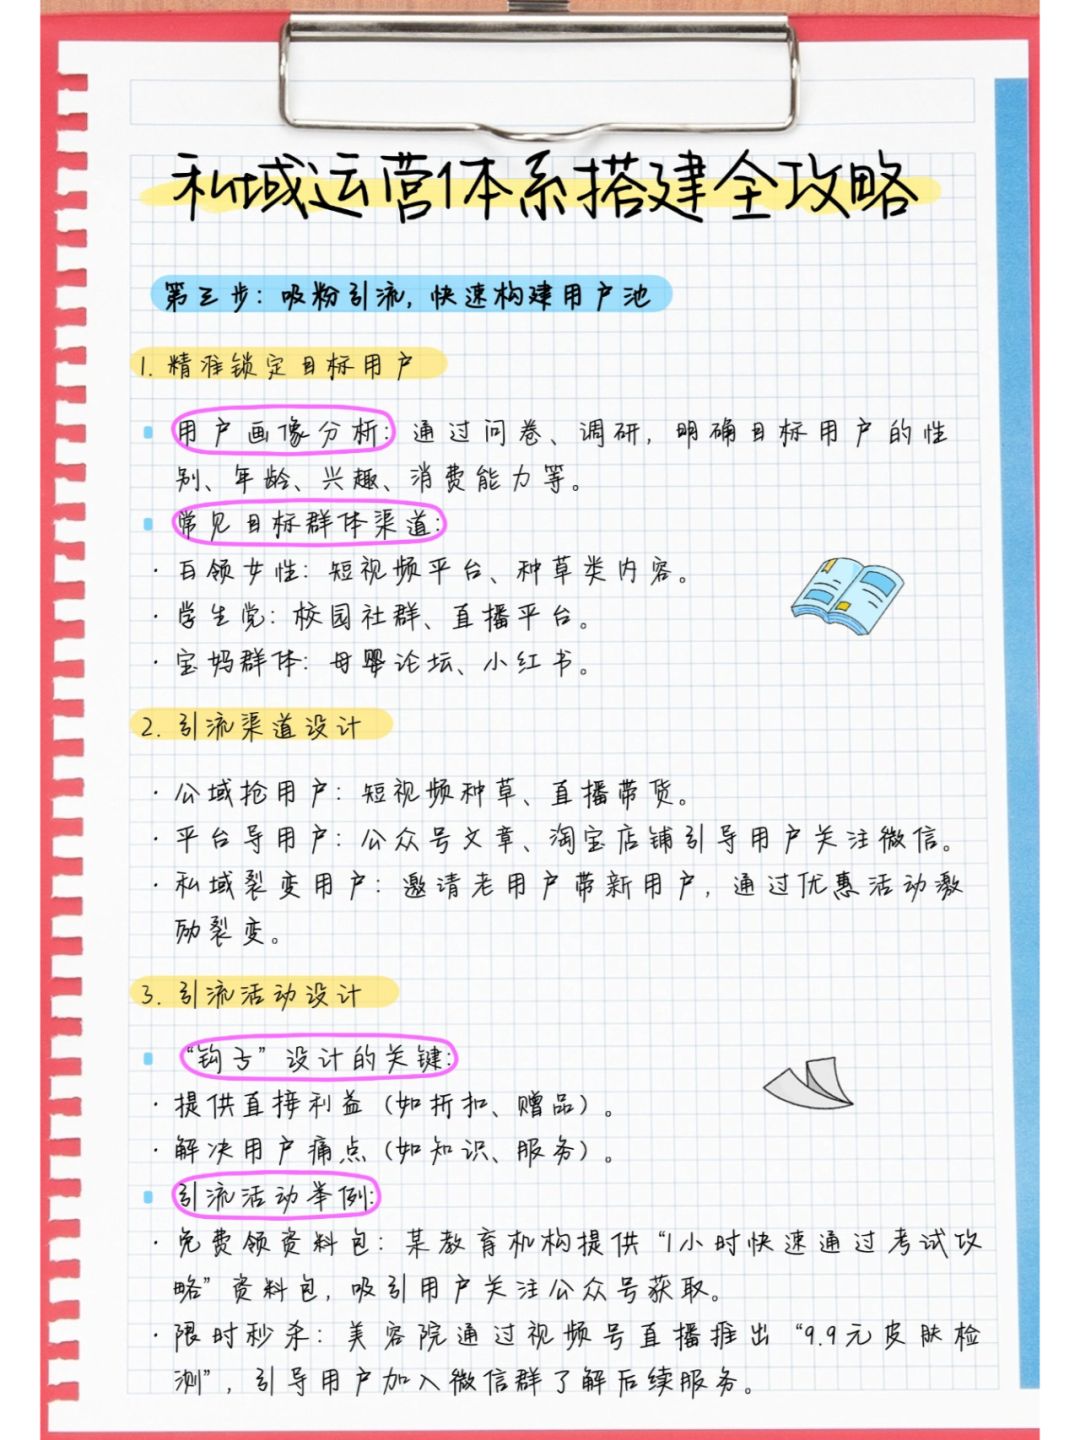 私域运营体系搭建全攻略
第三步：吸粉引流，快速构建用户池
1. 精准锁定目标用户
用户画像分析：通过问卷、调研，明确目标用户的性
别、年龄、兴趣、消费能力等。
常见目标群体渠道：
· 白领女性：短视频平台、种草类内容。
· 学生党：校园社群、直播平台。
· 宝妈群体：母婴论坛、小红书。
2. 引流渠道设计
· 公域抢用户：短视频种草、直播带货。
· 平台导用户：公众号文章、淘宝店铺引导用户关注微信。
· 私域裂变用户：邀请老用户带新用户，通过优惠活动激
励裂变。
3. 引流活动设计
“钩子”设计的关键：
· 提供直接利益（如折扣、赠品）。
· 解决用户痛点（如知识、服务）。
引流活动举例：
· 免费领资料包：某教育机构提供“1小时快速通过考试攻
略”资料包，吸引用户关注公众号获取。
· 限时秒杀：美容院通过视频号直播推出“9.9元皮肤检
测”，引导用户加入微信群了解后续服务。